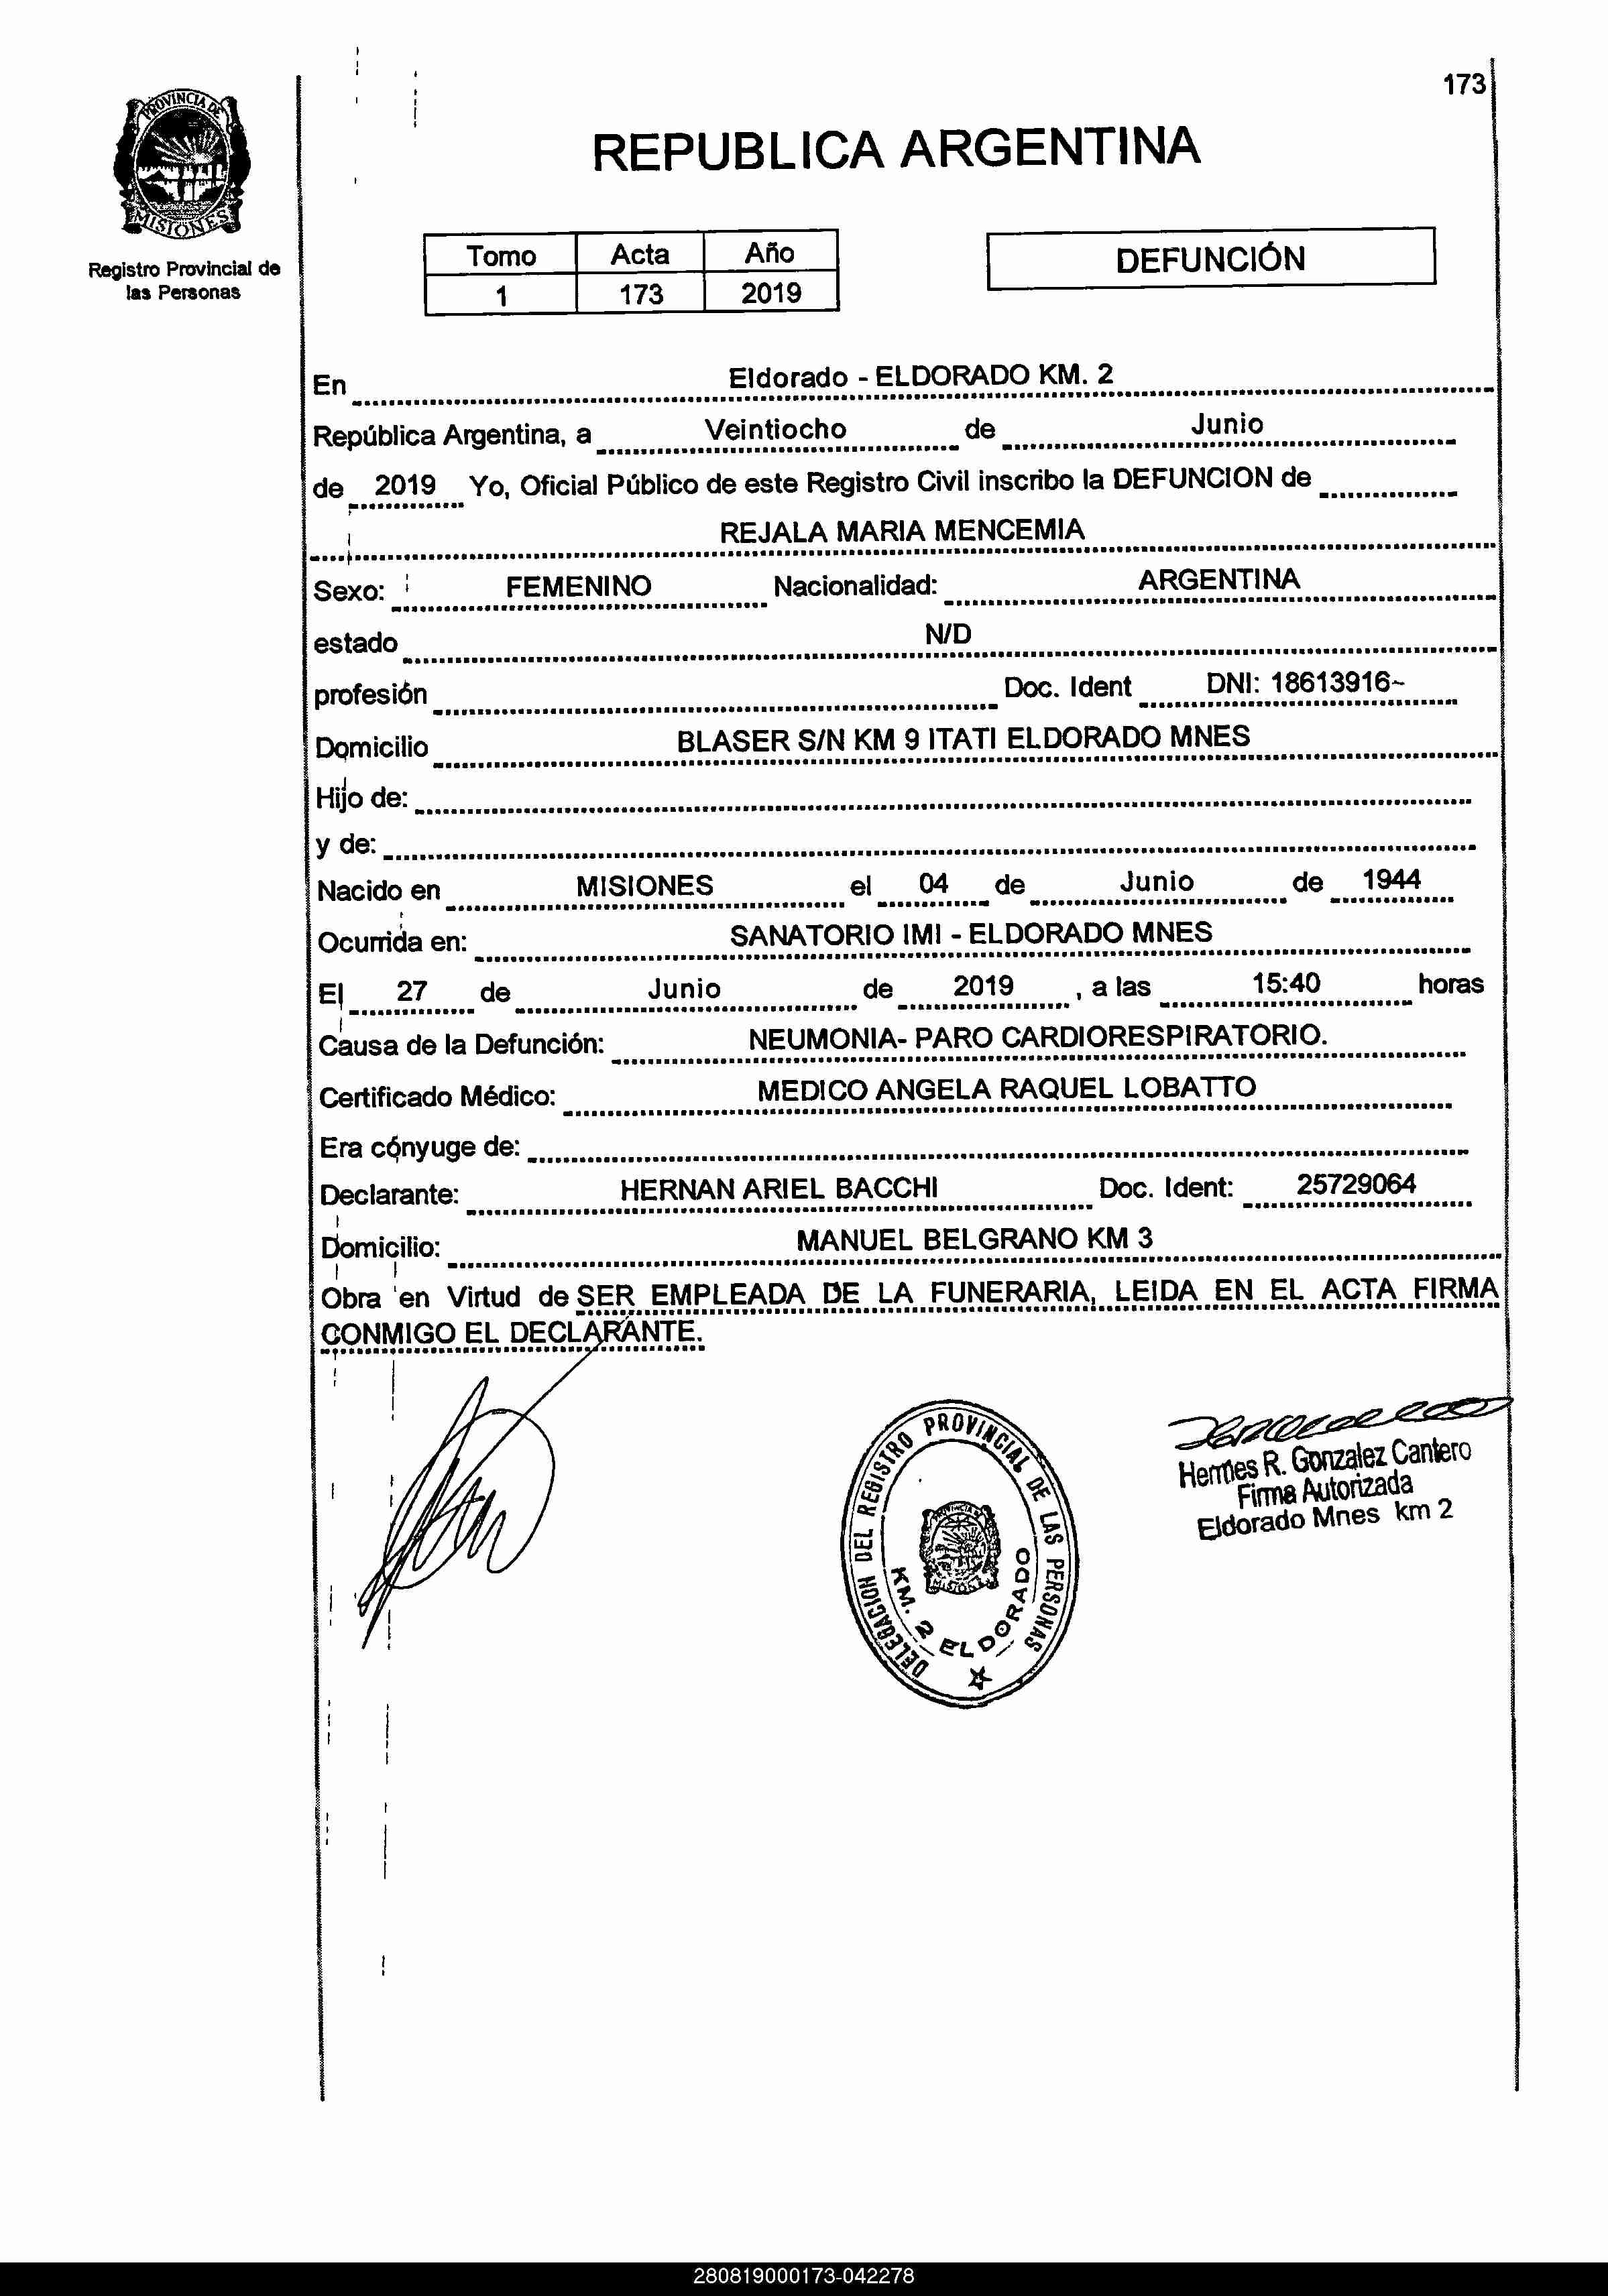 173
PROVINCIA DE
MISIONES
Registro Provincial de
las Personas
REPUBLICA ARGENTINA
Tomo Acta Año
1 173 2019
DEFUNCIÓN
En Eldorado - ELDORADO KM. 2
República Argentina, a Veintiocho de Junio
de 2019 Yo, Oficial Público de este Registro Civil inscribo la DEFUNCION de
REJALA MARIA MENCEMIA
Sexo: FEMENINO Nacionalidad: ARGENTINA
estado N/D
profesión Doc. Ident DNI: 18613916-
Domicilio BLASER S/N KM 9 ITATI ELDORADO MNES
Hijo de:
y de:
Nacido en MISIONES el 04 de Junio de 1944
Ocurrida en: SANATORIO IMI - ELDORADO MNES
El 27 de Junio de 2019 , a las 15:40 horas
Causa de la Defunción: NEUMONIA- PARO CARDIORESPIRATORIO.
Certificado Médico: MEDICO ANGELA RAQUEL LOBATTO
Era cónyuge de:
Declarante: HERNAN ARIEL BACCHI Doc. Ident: 25729064
Domicilio: MANUEL BELGRANO KM 3
Obra en Virtud de SER EMPLEADA DE LA FUNERARIA, LEIDA EN EL ACTA FIRMA
CONMIGO EL DECLARANTE.
DELEGACION DEL REGISTRO PROVINCIAL DE LAS PERSONAS
KM. 2 ELDORADO
Hermes R. Gonzalez Cantero
Firma Autorizada
Eldorado Mnes km 2
280819000173-042278